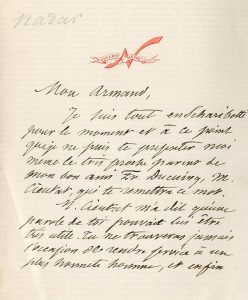 nadar
Mon Armand,
Je suis tout
pour le moment et à ce point
que je ne puis te présenter moi
même le très proche parent de
mon bon ami Ducuing, M.
Cieutat, qui te remettra ce mot.
M. Cieutat m'a dit qu'une
parole de toi pouvait lui être
très utile. Tu ne trouveras jamais
l'occasion de rendre service à un
plus honnête homme, et enfin